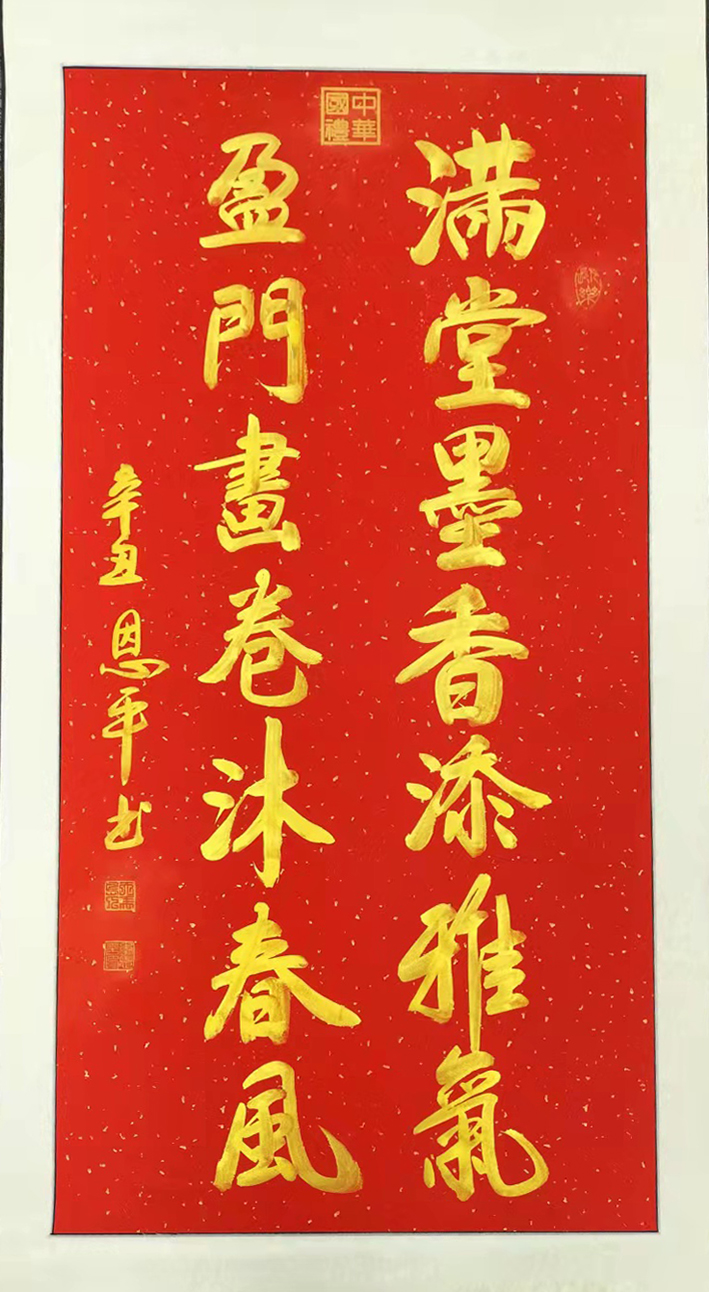 中華國禮
满堂墨香添雅氣
盈門畫卷沐春風
辛丑 恩平书